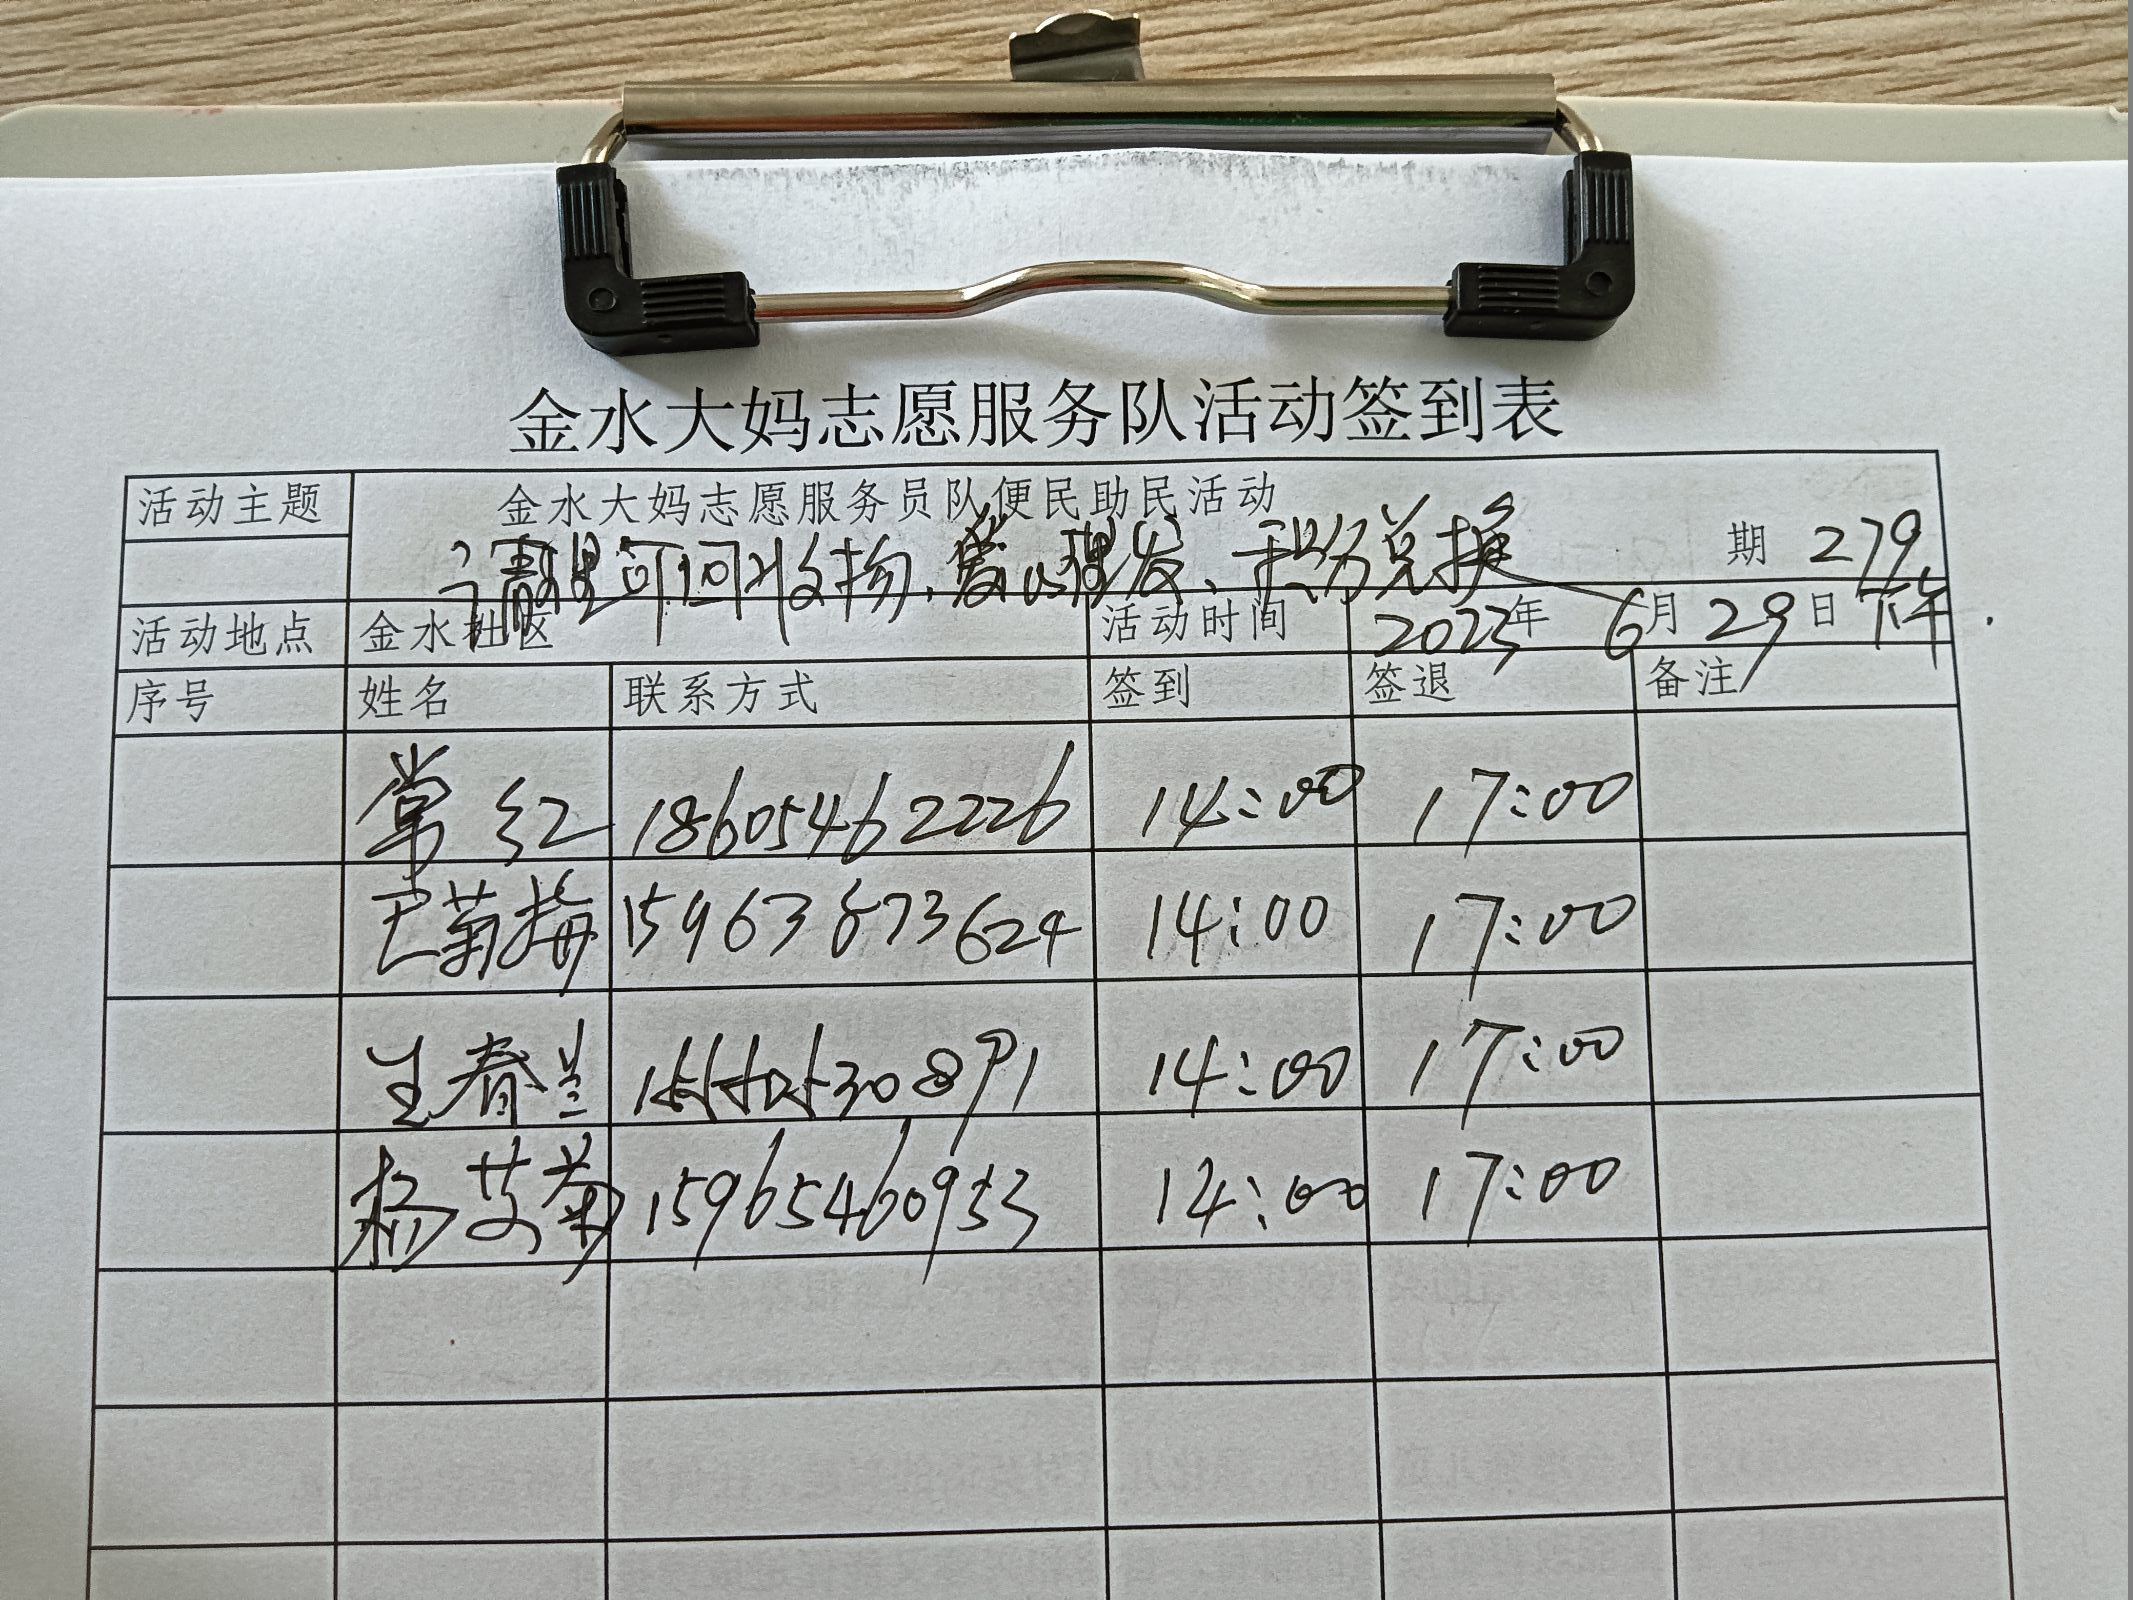 金水大妈志愿服务队活动签到表
活动主题 金水大妈志愿服务员队便民助民活动
清理可回收物、爱心理发、积分兑换 期 279
活动地点 金水社区 活动时间 2023年 6月29日 下午
序号 姓名 联系方式 签到 签退 备注
常红 18605462226 14:00 17:00
巴菊梅 15963873624 14:00 17:00
王春兰 14:00 17:00
杨艾菊 15965460953 14:00 17:00